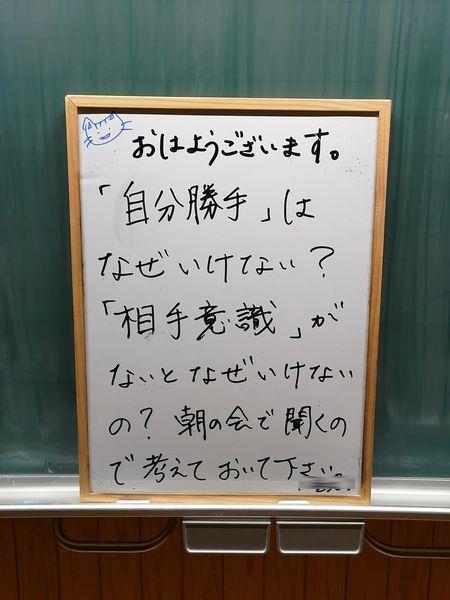 おはようございます。
「自分勝手」は
なぜいけない？
「相手意識」が
ないとなぜいけない
の？朝の会で聞くの
で考えておいて下さい。